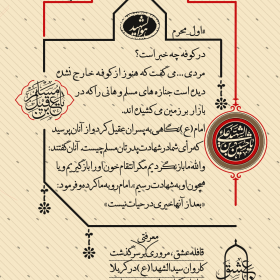 خورشید
«اول محرم
در کوفه چه خبر است؟
مردی... می گفت که هنوز از کوفه خارج نشده
دیده است جنازه های مسلم و هانی را که در
بازار بر زمین می کشیده اند.
امام (ع) نگاهی به پسران عقیل کرد و از آنان پرسید
که رأی شما در شهادت پدرتان مسلم چیست. آنان گفتند:
والله ما باز نگردیم مگر انتقام خون او را بازگیریم و یا
همچون او به شهادت رسیم. امام رو به ما کرده و فرمود:
«بعد از آنها خیری در حیات نیست»
معرفی
قافله عشق، مروری بر سرگذشت
کاروان سیدالشهدا (ع) در کربلا